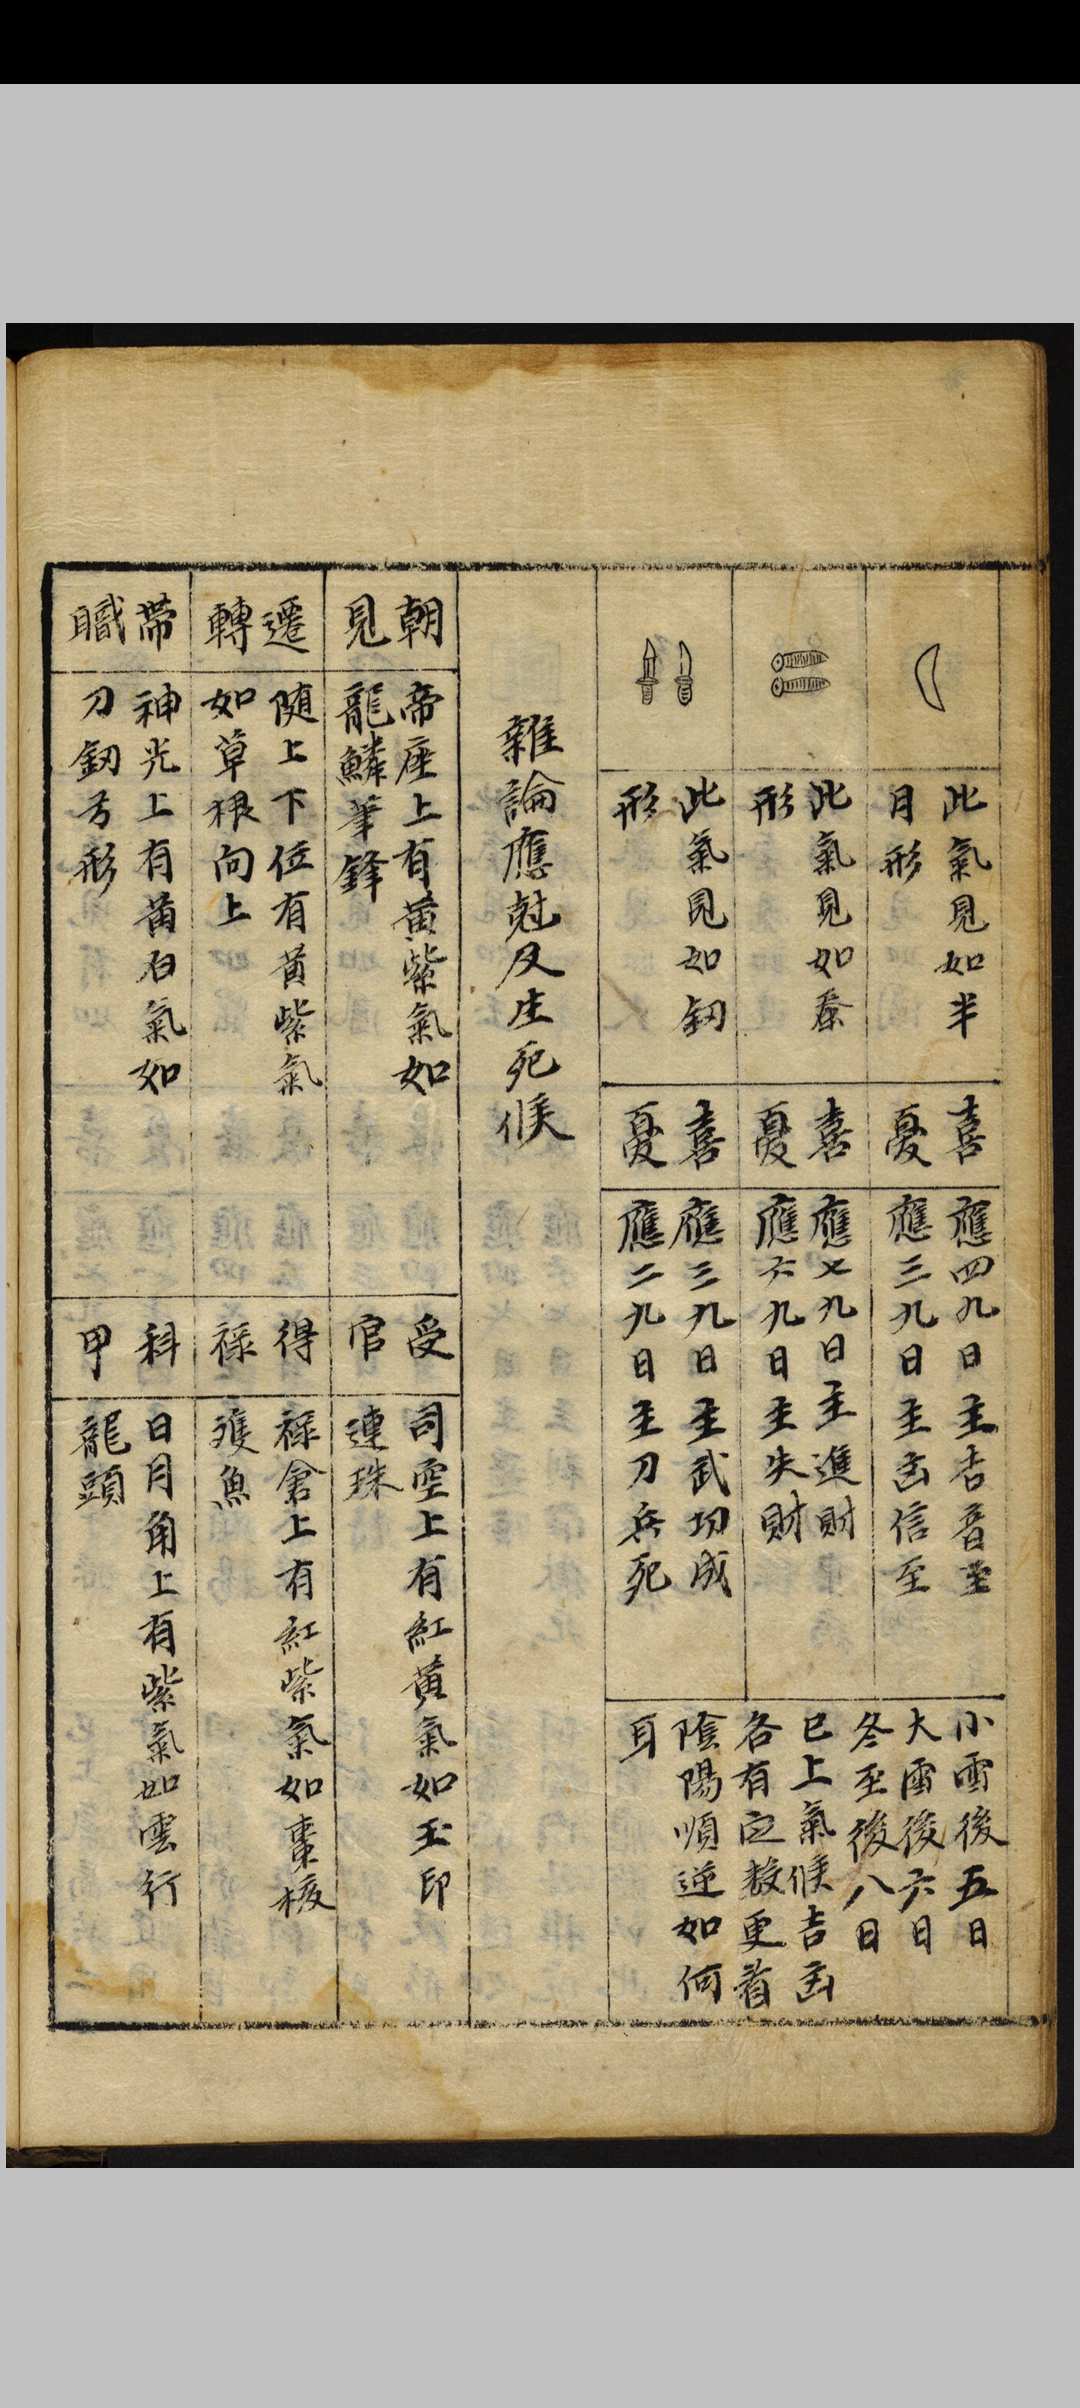 此氣見如半
月形
喜
憂
應四九日主吉音至
應三九日主凶信至
此氣見如秦
形
喜
憂
應七九日主進財
應六九日主失財
此氣見如釼
形
喜
憂
應三九日主武功成
應二九日主刀兵死
小雪後五日
大雪後六日
冬至後八日
已上氣候吉凶
各有定数更看
陰陽順逆如何
耳
雜論應尅及生死候
朝
見
帝座上有黄紫氣如
龍鱗筆鋒
受
官
司空上有紅黄氣如玉印
連珠
遷
轉
随上下位有黄紫氣
如草根向上
得
禄
禄倉上有紅紫氣如棗核
獲魚
帶
職
神光上有黄白氣如
刀釼方形
科
甲
日月角上有紫氣如雲行
龍頭